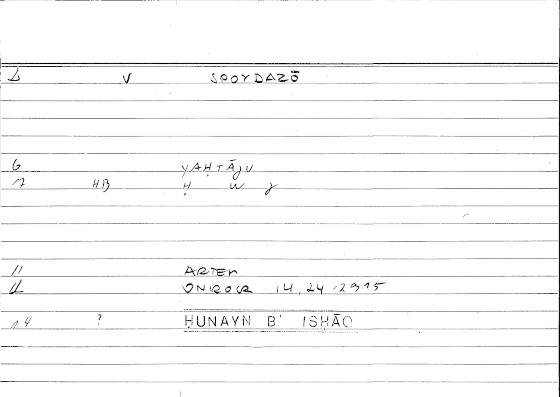 V SPOYDAZŌ
6 YAḤTĀJU
7 HB Ḥ W J
11 ARTEM
ONIROCR 14,24 -2915
14 ? ḤUNAYN B' ISḤĀQ